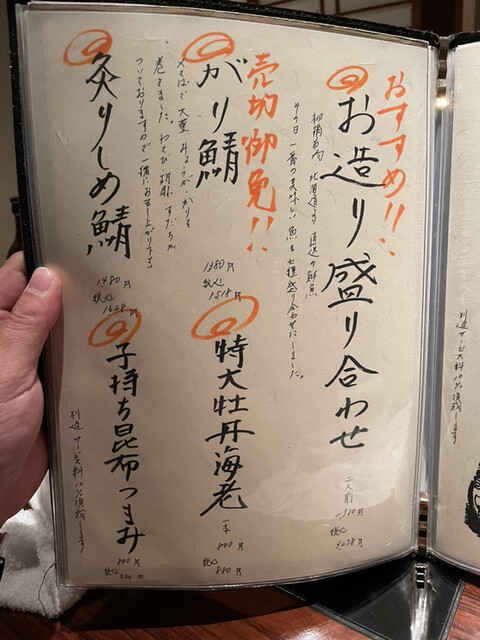 おすすめ!!
お造り盛り合わせ
柏崎市内、北海道より直送の鮮魚
その日一番の美味しい魚を七種盛り合わせにしました。
二人前
税込
売切御免!!
がり鯖
〆さばで大葉、みょうが、がりを
巻きました。わさび、胡麻、すだちが
ついておりますので一緒にお召し上がり下さい
1380円
税込
1518円
特大牡丹海老
一本
800円
税込
880円
炙りしめ鯖
1480円
税込
1628円
子持ち昆布つまみ
800円
税込
880円
別途サービス料10%頂戴します
別途サービス料10%頂戴します